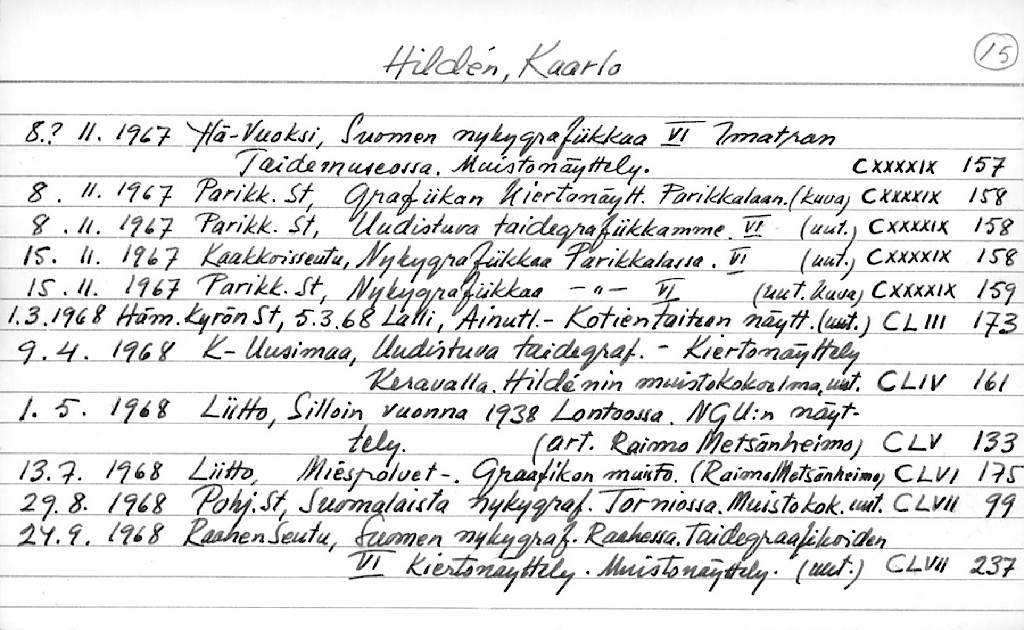 15
Hildén, Kaarlo
8.? 11. 1967 Ylä-Vuoksi, Suomen nykygrafiikkaa VI Imatran
Taidemuseossa. Muistonäyttely. CXXXXIX 157
8. 11. 1967 Parikk. St, Grafiikan kiertonäytt. Parikkalaan. (kuva) CXXXXIX 158
8. 11. 1967 Parikk. St, Uudistuva taidegrafiikkamme. VI (uut.) CXXXXIX 158
15. 11. 1967 Kaakkoisseutu, Nykygrafiikkaa Parikkalassa. VI (uut.) CXXXXIX 158
15. 11. 1967 Parikk. St, Nykygrafiikkaa –"– VI (uut. kuva) CXXXXIX 159
1.3.1968 Häm.Kyrön St, 5.3.68 Lalli, Ainutl.- Kotientaiteen näytt. (uut.) CLIII 173
9. 4. 1968 K-Uusimaa, Uudistuva taidegraf. - Kiertonäyttely
Keravalla. Hildénin muistokokoelma, uut. CLIV 161
1. 5. 1968 Liitto, Silloin vuonna 1938 Lontoossa. NGU:n näyt-
tely. (art. Raimo Metsänheimo) CLV 133
13.7. 1968 Liitto, Miespolvet-. Graafikon muisto. (Raimo Metsänheimo) CLVI 175
29. 8. 1968 Pohj. St, Suomalaista nykygraf. Torniossa. Muistokok. uut. CLVII 99
24.9. 1968 Raahen Seutu, Suomen nykygraf. Raahessa. Taidegraafikoiden
VI Kiertonäyttely. Muistonäyttely. (uut.) CLVII 237